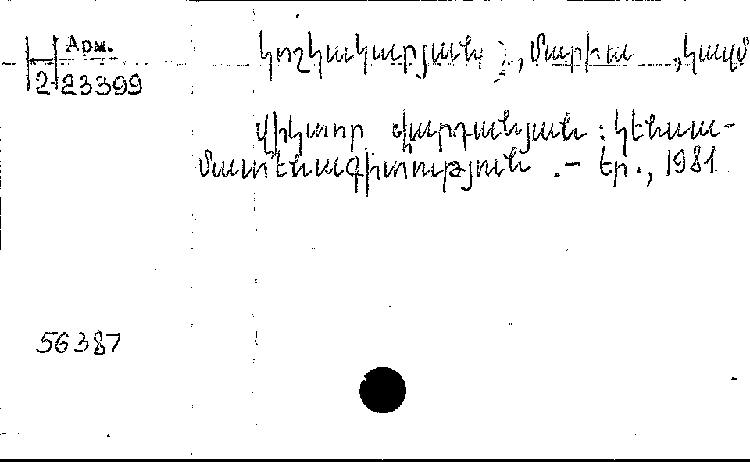 Арм.
2-23399
Կոշկակարյան, Մարիա, կազմ
Վիկտոր Վարդանյան : Կենսա-
մատենագիտություն .- Եր., 1981
56387